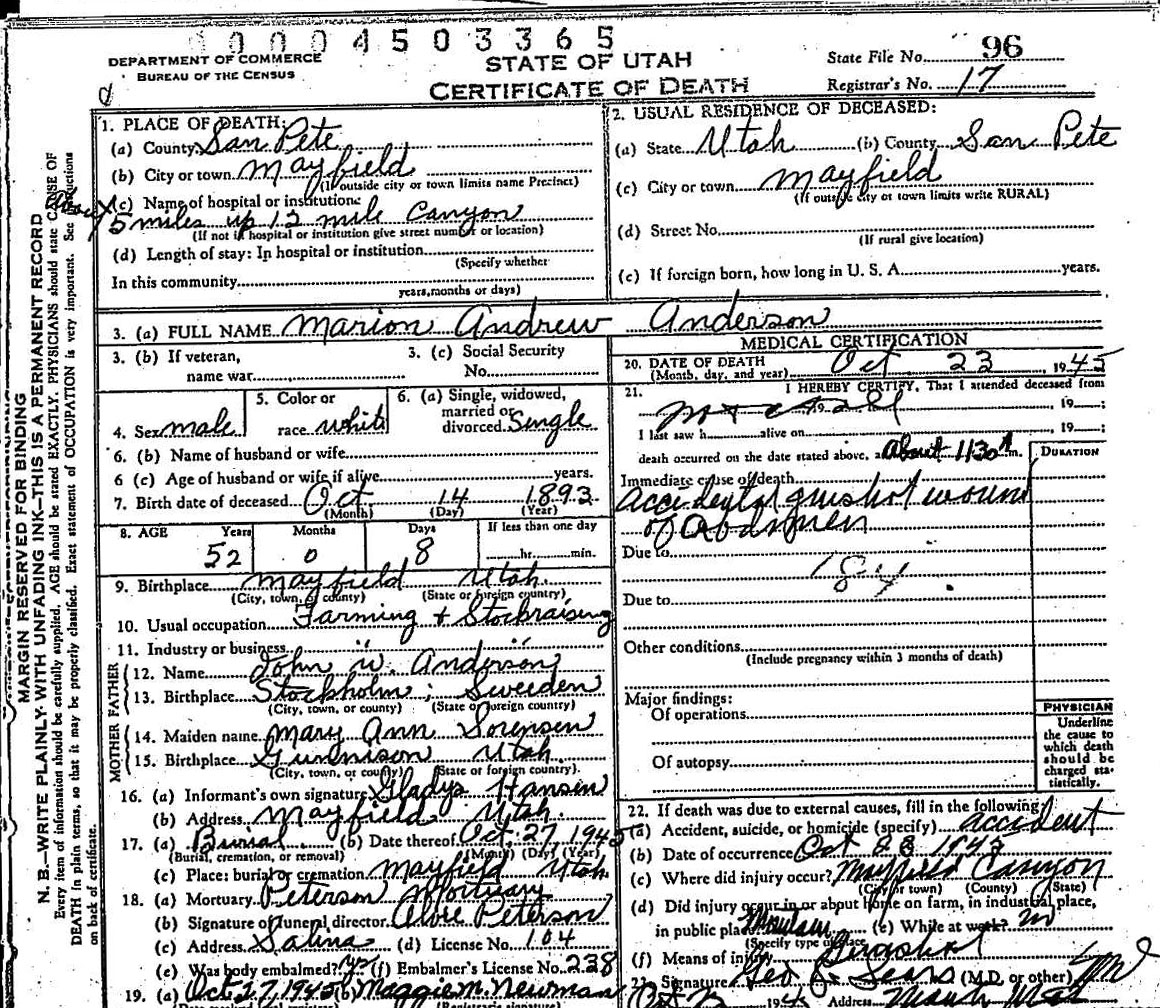 10004503365
DEPARTMENT OF COMMERCE
BUREAU OF THE CENSUS
STATE OF UTAH
CERTIFICATE OF DEATH
State File No. 96
Registrar's No. 17
MARGIN RESERVED FOR BINDING
N. B.—WRITE PLAINLY WITH UNFADING INK—THIS IS A PERMANENT RECORD
Every item of information should be carefully supplied. AGE should be stated EXACTLY. PHYSICIANS should state CAUSE OF
DEATH in plain terms, so that it may be properly classified. Exact statement of OCCUPATION is very important. See
on back of certificate.
1. PLACE OF DEATH:
(a) County San Pete
(b) City or town Mayfield
(If outside city or town limits name Precinct)
(c) Name of hospital or institution:
About 5 miles up 12 mile Canyon
(If not in hospital or institution give street number or location)
(d) Length of stay: In hospital or institution
(Specify whether
In this community
years, months or days)
2. USUAL RESIDENCE OF DECEASED:
(a) State Utah (b) County San Pete
(c) City or town Mayfield
(If outside city or town limits write RURAL)
(d) Street No.
(If rural give location)
(e) If foreign born, how long in U. S. A. years.
3. (a) FULL NAME Marion Andrew Anderson
3. (b) If veteran,
name war
3. (c) Social Security
No.
4. Sex male
5. Color or
race white
6. (a) Single, widowed,
married or
divorced Single
6. (b) Name of husband or wife
6 (c) Age of husband or wife if alive years.
7. Birth date of deceased Oct 14 1893
(Month) (Day) (Year)
8. AGE Years Months Days If less than one day
52 0 8 hr. min.
9. Birthplace Mayfield Utah
(City, town, or county) (State or foreign country)
10. Usual occupation Farming + Stockraising
11. Industry or business " "
FATHER
12. Name John W. Anderson
13. Birthplace Stockholm; Sweeden
(City, town, or county) (State or foreign country)
MOTHER
14. Maiden name Mary Ann Sorensen
15. Birthplace Gunnison Utah
(City, town, or county) (State or foreign country)
16. (a) Informant's own signature Gladys Hansen
(b) Address Mayfield Utah
17. (a) Burial (b) Date thereof Oct, 27, 1945
(Burial, cremation, or removal) (Month) (Day) (Year)
(c) Place: burial or cremation Mayfield Utah
18. (a) Mortuary Peterson Mortuary
(b) Signature of funeral director Alvie Peterson
(c) Address Salina (d) License No. 104
(e) Was body embalmed? yes (f) Embalmer's License No. 238
19. (a) Oct 27, 1945 (b) Maggie M. Newman
MEDICAL CERTIFICATION
20. DATE OF DEATH
(Month, day, and year) Oct 23, 1945
21. I HEREBY CERTIFY, That I attended deceased from
not at all 19 , 19 ;
I last saw h alive on , 19 ;
death occurred on the date stated above, at About 1130 A m.
DURATION
Immediate cause of death
Accidental gunshot wound
of Abdomen
Due to
184
Due to
Other conditions
(Include pregnancy within 3 months of death)
Major findings:
Of operations
Of autopsy
PHYSICIAN
Underline
the cause to
which death
should be
charged sta-
tistically.
22. If death was due to external causes, fill in the following:
(a) Accident, suicide, or homicide (specify) accident
(b) Date of occurrence Oct 23 1945
(c) Where did injury occur? Mayfield Canyon
(City or town) (County) (State)
(d) Did injury occur in or about home on farm, in industrial place,
in public place? (e) While at work? no
(Specify type of place)
(f) Means of injury Gunshot
23. Signature Geo Sears (M.D. or other)
1945 Address